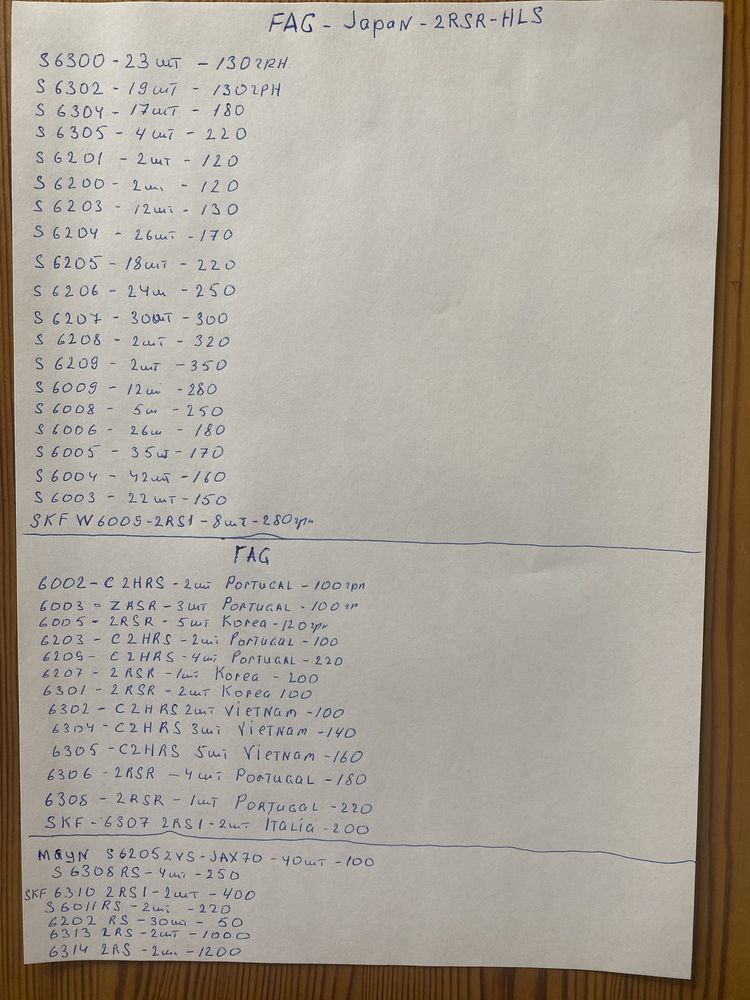 FAG - Japan - 2RSR-HLS
S6300 - 23 шт - 130 грн.
S 6302 - 19 шт - 130 грн
S 6304 - 17 шт - 180
S 6305 - 4 шт - 220
S 6201 - 2 шт - 120
S 6200 - 2ш. - 120
S 6203 - 12 шт - 130
S 6204 - 26 шт - 170
S 6205 - 18 шт - 220
S 6206 - 24ш - 250
S 6207 - 30 шт - 300
S 6208 - 2шт - 320
S 6209 - 2шт - 350
S 6009 - 12ш - 280
S 6008 - 5ш - 250
S 6006 - 26ш - 180
S 6005 - 35шт - 170
S 6004 - 42шт - 160
S 6003 - 22 шт - 150
SKF W6009-2RS1 - 8шт - 280 грн
FAG
6002 - C 2HRS - 2шт PORTUGAL - 100 грн
6003 = ZRSR - 3шт PORTUGAL - 100 гр
6005 - 2RSR - 5шт Korea - 120 грн
6203 - C 2HRS - 2шт PORTUGAL - 100
6205 - C 2HRS - 4шт PORTUGAL - 220
6207 - 2RSR - 1шт Korea - 200
6301 - 2RSR - 2шт Korea 100
6302 - C2HRS 2шт VIETNAM - 100
6304 - C2HRS 3шт VIETNAM - 140
6305 - C2HRS 5шт VIETNAM - 160
6306 - 2RSR - 4шт PORTUGAL - 180
6308 - 2RSR - 1шт PORTUGAL - 220
SKF - 6307 2RS1 - 2шт ITALIA - 200
S62052VS - JAX70 - 40шт - 100
S 6308RS - 4шт - 250
SKF 6310 2RS1 - 2шт - 400
S6011RS - 2шт - 220
6202 RS - 30шт - 50
6313 2RS - 2шт - 1000
6314 2RS - 2шт - 1200